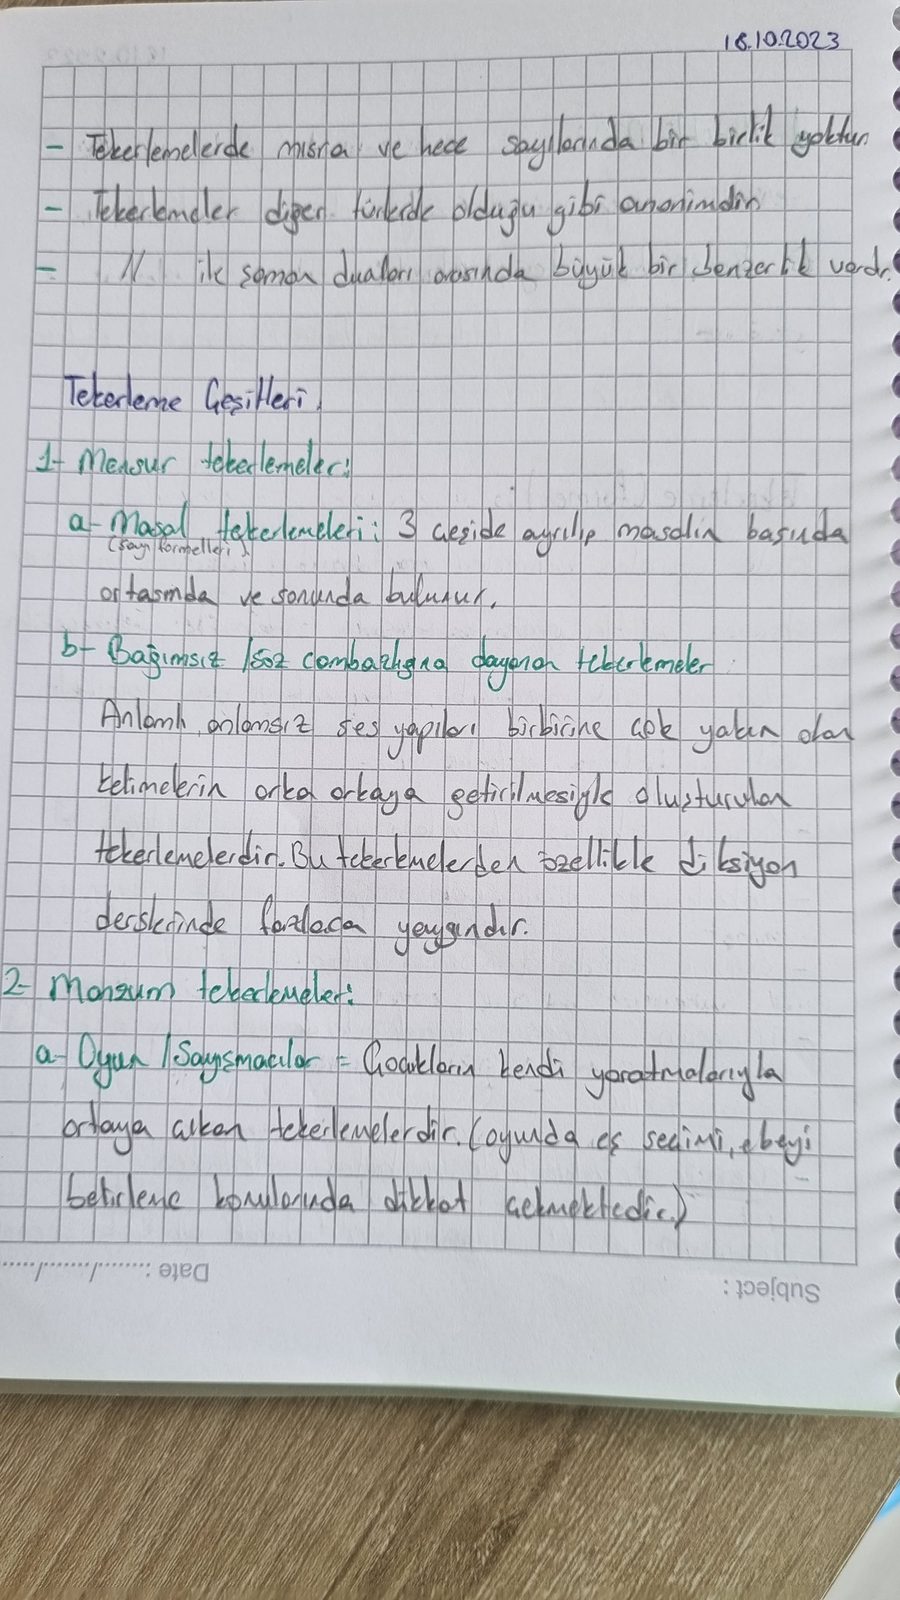 18.10.2023
- Tekerlemelerde mısra ve hece sayılarında bir birlik yoktur.
- Tekerlemeler diğer türlerde olduğu gibi anonimdir
- // ile şaman duaları arasında büyük bir benzerlik vardır.
Tekerleme Çeşitleri
1- Mensur tekerlemeler:
a- Masal tekerlemeleri: 3 çeşide ayrılıp masalın başında
(sayı formelleri)
ortasında ve sonunda bulunur.
b- Bağımsız / Söz cambazlığına dayanan tekerlemeler
Anlamlı, anlamsız ses yapıları birbirine çok yakın olan
kelimelerin arka arkaya getirilmesiyle oluşturulan
tekerlemelerdir. Bu tekerlemelerden özellikle diksiyon
derslerinde fazlaca yaygındır.
2- Manzum tekerlemeler:
a- Oyun / Sayışmacılar = Çocukların kendi yaratmalarıyla
ortaya çıkan tekerlemelerdir. (oyunda eş seçimi, ebeyi
belirleme konularında dikkat çekmektedir.)
Date :......../......../........
Subject :